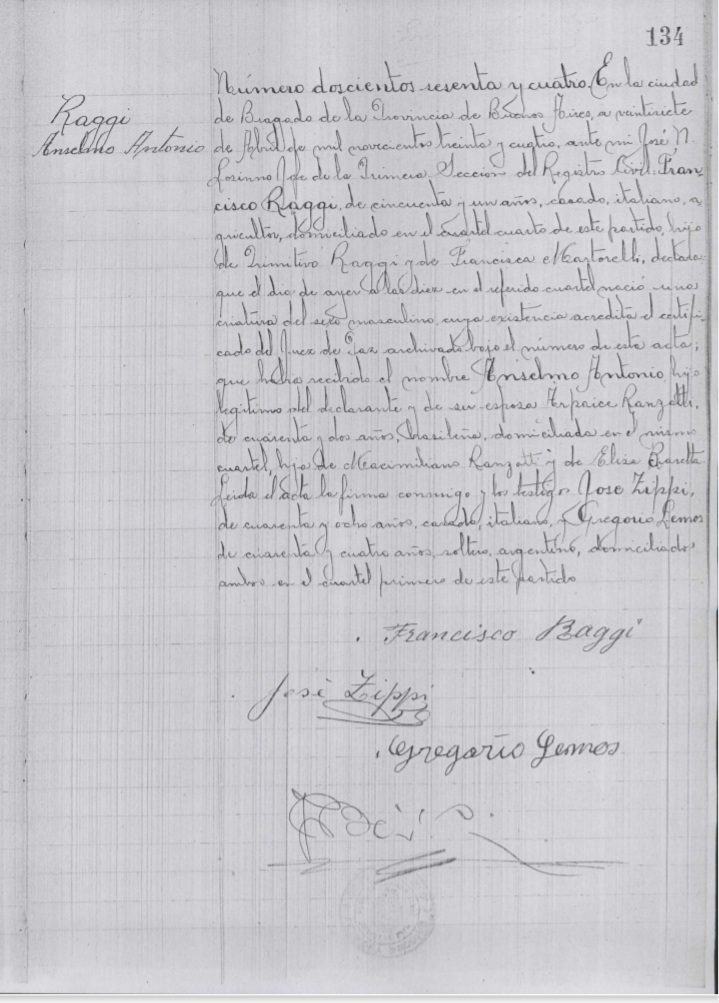 134
Raggi
Anselmo Antonio
Número doscientos sesenta y cuatro. En la ciudad
de Bragado de la Provincia de Buenos Aires, a veintisiete
de Abril de mil novecientos treinta y cuatro, ante mi José N.
Jefe de la Primera Seccion del Registro Civil: Fran
cisco Raggi, de cincuenta y un años, casado, italiano, a
gricultor, domiciliado en el cuartel cuarto de este partido, hijo
de Primitivo Raggi y de Francisca Martorelli, declara:
que el dia de ayer a las diez en el referido cuartel nació una
criatura del sexo masculino, cuya existencia acredita el certifi
cado del Juez de Paz archivado bajo el número de esta acta;
que ha recibido el nombre Anselmo Antonio, hijo
legitimo del declarante y de su esposa Ranzotti,
de cuarenta y dos años, brasileña, domiciliada en el mismo
cuartel, hija de Macimiliano Ranzotti y de Elisa Baretta
Leida el acta la firma conmigo y los testigos Jose Zippi,
de cuarenta y ocho años, casado, italiano, y Gregorio Lemos
de cuarenta y cuatro años, soltero, argentino, domiciliados
ambos en el cuartel primero de este partido
Francisco Raggi
José Zippi
Gregorio Lemos